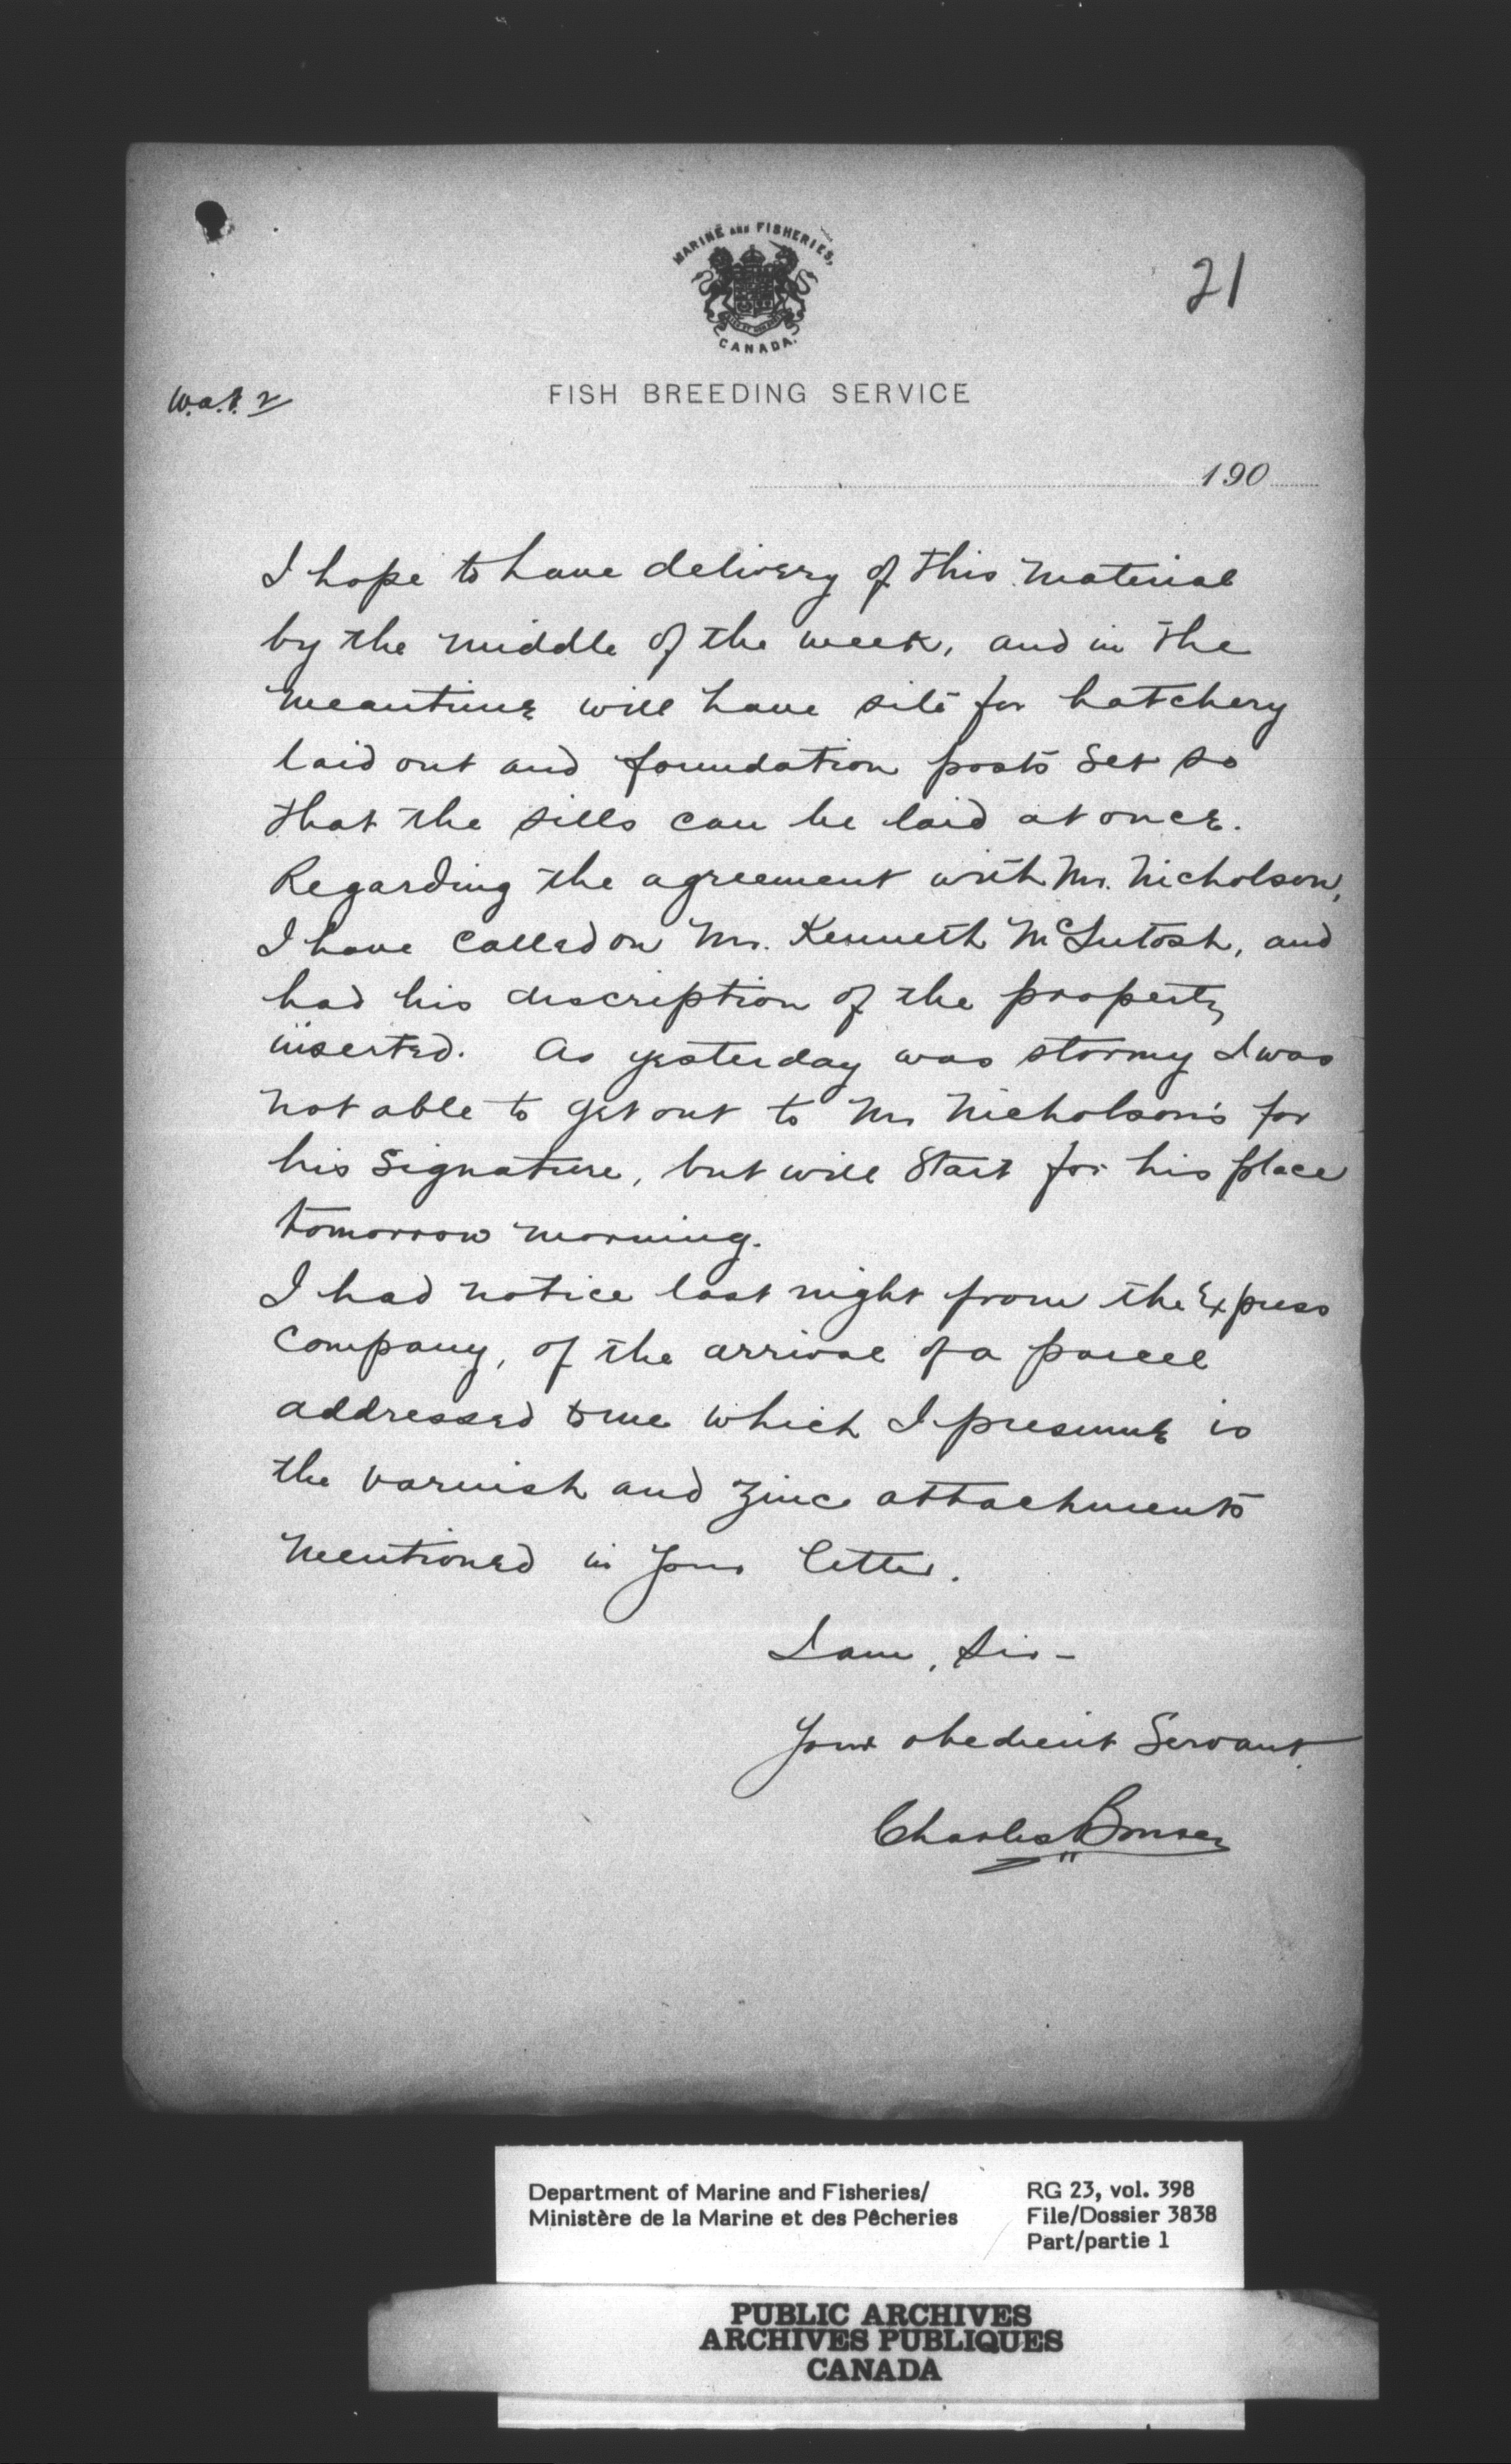 21
MARINE AND FISHERIES,
CANADA.
FISH BREEDING SERVICE
190
I hope to have delivery of this material
by the middle of the week, and in the
meantime will have site for hatchery
laid out and foundation posts set so
that the sills can be laid at once.
Regarding the agreement with Mr. Nicholson,
I have called on Mr. Kenneth McIntosh, and
had his discription of the property
inserted. As yesterday was stormy I was
not able to get out to Mr Nicholson's for
his signature, but will start for his place
tomorrow morning.
I had notice last night from the Express
Company, of the arrival of a parcel
addressed to me which I presume is
the varnish and zinc attachments
mentioned in your letter.
I am, Sir -
Your obedient Servant.
Charles
Department of Marine and Fisheries/
Ministère de la Marine et des Pêcheries
RG 23, vol. 398
File/Dossier 3838
Part/partie 1
PUBLIC ARCHIVES
ARCHIVES PUBLIQUES
CANADA